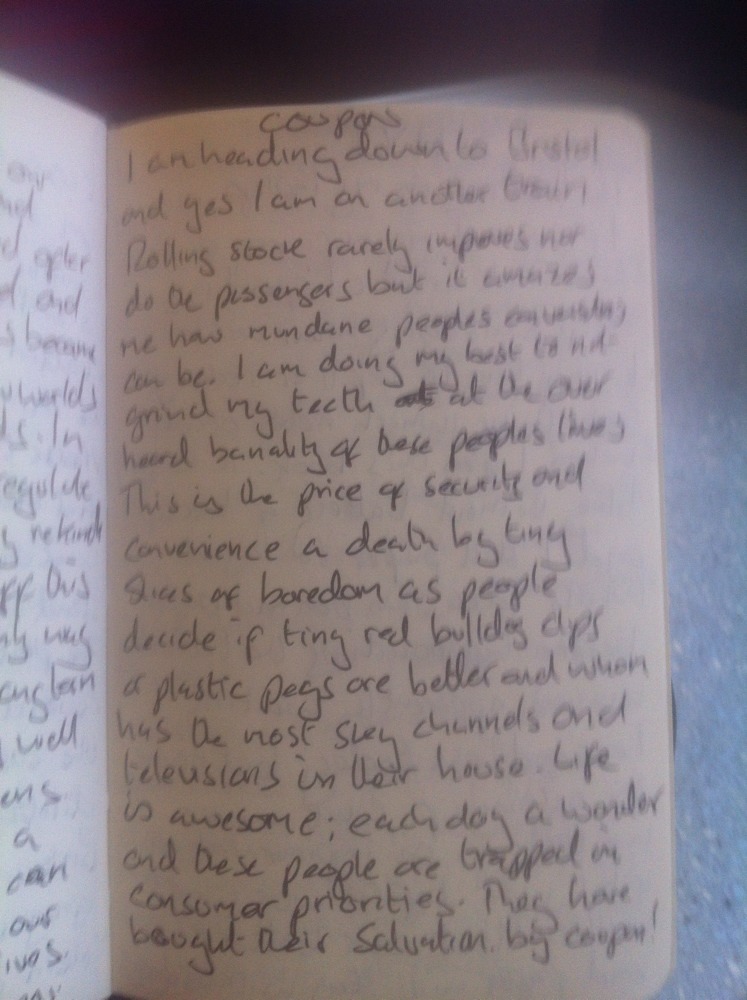 our
and
after
and
became
worlds
In
regulate
off this
way
well
a
can
our
Coupons
I am heading down to Bristol
and yes I am on another train
Rolling stock rarely improves nor
do the passengers but it amazes
me how mundane peoples
can be. I am doing my best to not
grind my teeth at the over
heard banality of these peoples lives
This is the price of security and
convenience a death by tiny
slices of boredom as people
decide if ting red bulldog clips
or plastic pegs are better and whom
has the most sky channels and
televisions in their house. Life
is awesome; each day a wonder
and these people are trapped in
consumer priorities. They have
bought their salvation by coupon!